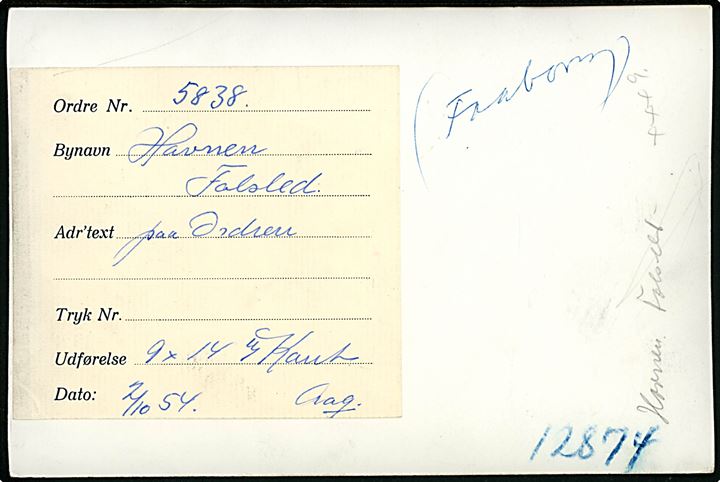 Ordre Nr. 5838.
Bynavn Havnen
Falsled.
Adr'text paa Ordren
Tryk Nr.
Udførelse 9 x 14 m/ Kant
Dato: 2/10 54. Aag.
(Faaborg)
Havnen Falsled 4449.
12874